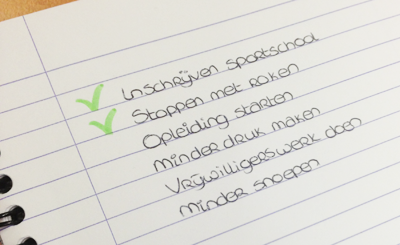 Inschrijven sportschool
Stoppen met roken
Opleiding starten
Minder druk maken
Vrijwilligerswerk doen
Minder snoepen